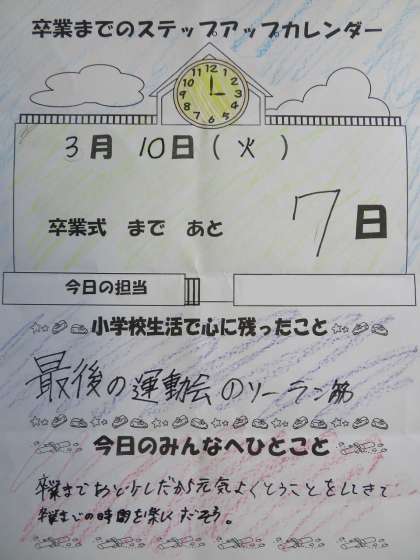 卒業までのステップアップカレンダー
12 1 2 3 4 5 6 7 8 9 10 11
3月 10日(火)
卒業式 まで あと 7日
今日の担当
小学校生活で心に残ったこと
最後の運動会のソーラン節
今日のみんなへひとこと
卒業まであと少しだから元気よくとうこうをしてきて
卒業までの時間を楽しくだそう。